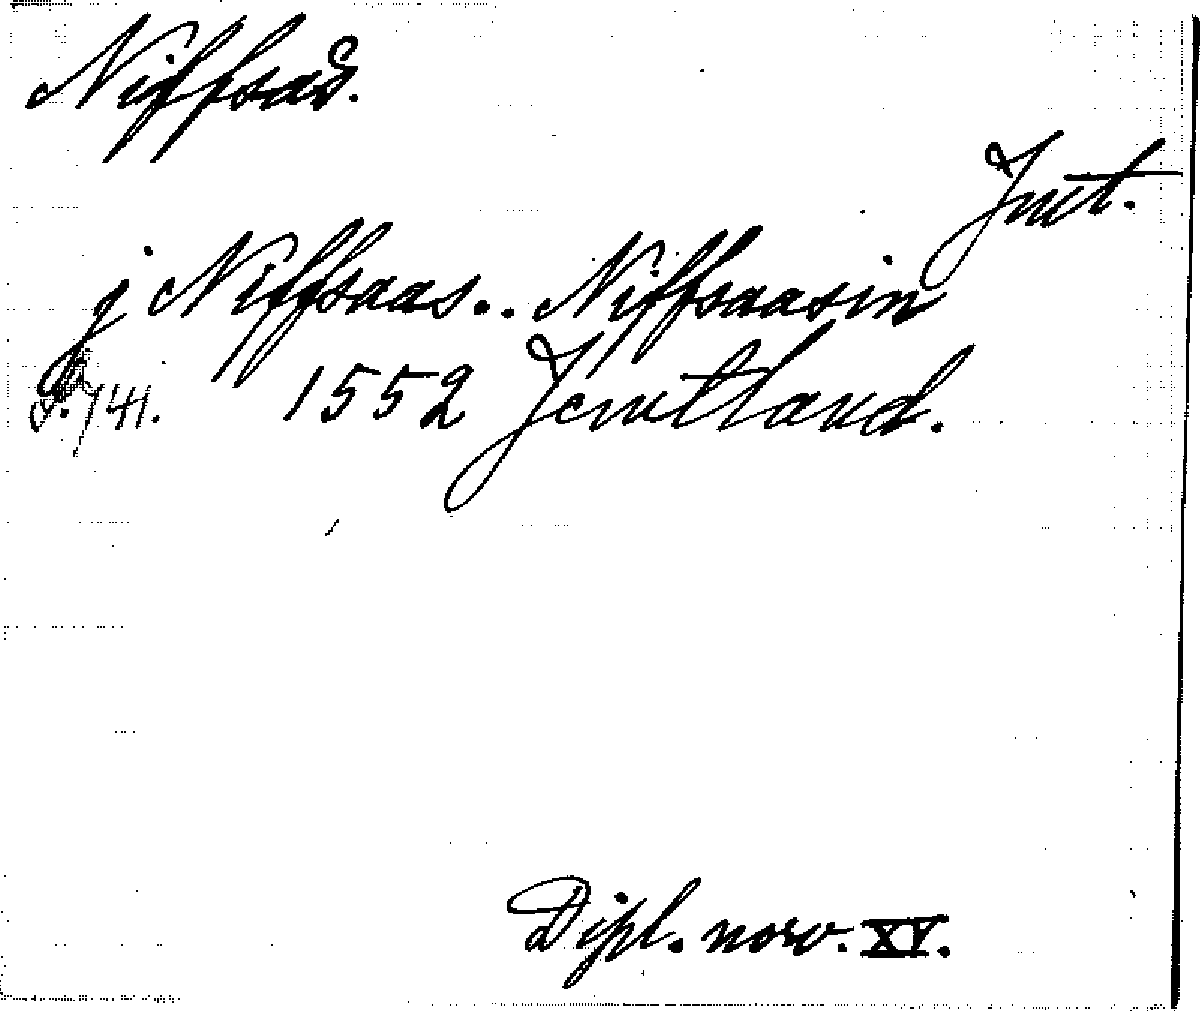 Niffsås.
Jmt.
j Niffsaas.. Niffsaasin
S. 741. 1552 Jemtland.
Dipl. norv. XV.